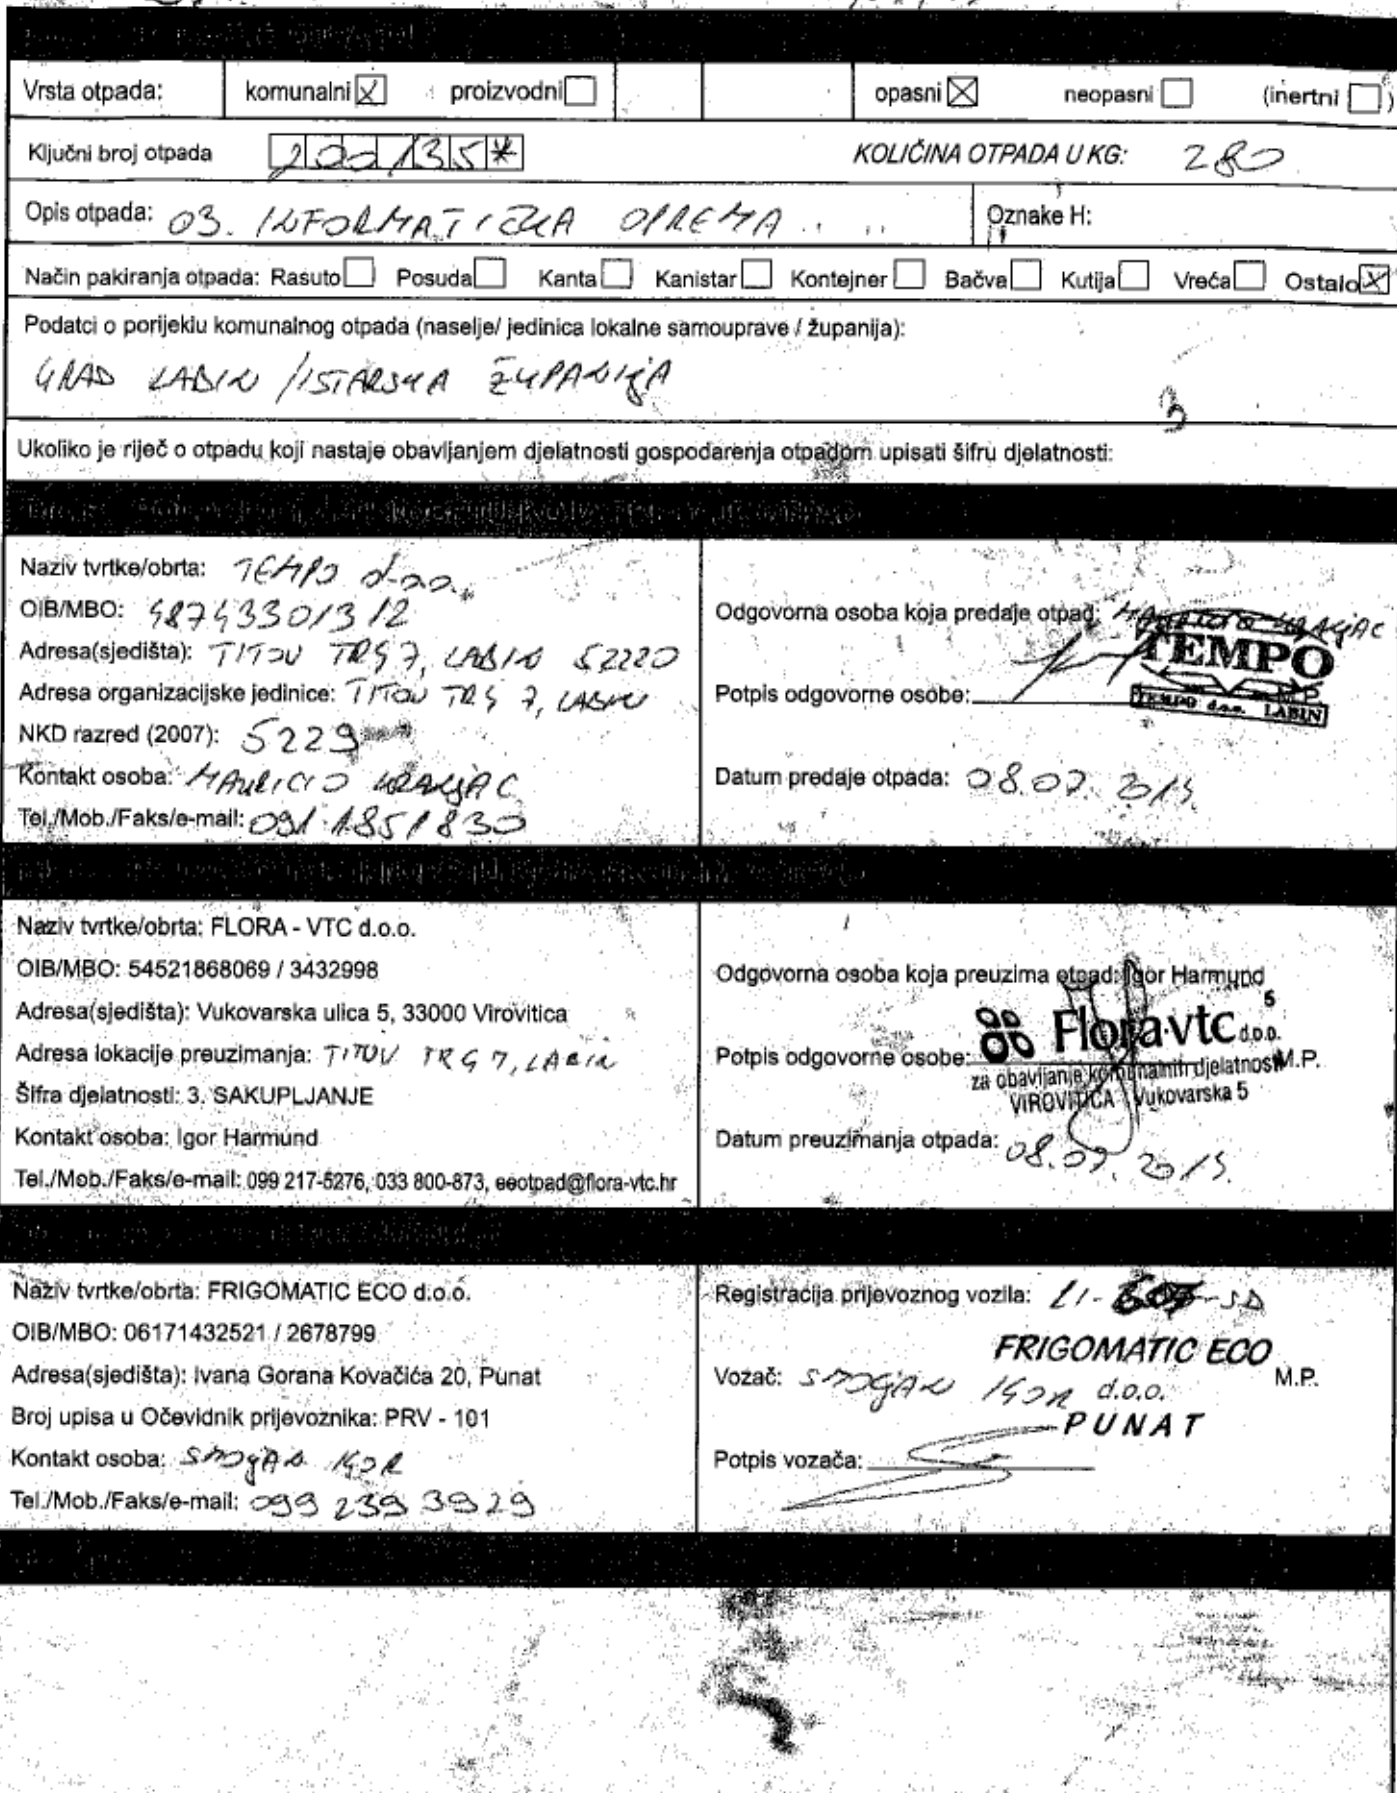 Vrsta otpada: komunalni X proizvodni opasni X neopasni (inertni )
Ključni broj otpada 200135* KOLIČINA OTPADA U KG: 280
Opis otpada: 03. INFORMATIČKA OPREMA Oznake H:
Način pakiranja otpada: Rasuto Posuda Kanta Kanistar Kontejner Bačva Kutija Vreća Ostalo X
Podatci o porijeklu komunalnog otpada (naselje/ jedinica lokalne samouprave / županija):
GRAD LABIN / ISTARSKA ŽUPANIJA
3
Ukoliko je riječ o otpadu koji nastaje obavljanjem djelatnosti gospodarenja otpadom upisati šifru djelatnosti:
Naziv tvrtke/obrta: TEMPO d.o.o.
OIB/MBO: 48743301312
Adresa(sjedišta): TITOV TRG 7, LABIN 52220
Adresa organizacijske jedinice: TITOV TRG 7, LABIN
NKD razred (2007): 5229
Kontakt osoba: MAURICIO KRANJAC
Tel./Mob./Faks/e-mail: 091 1851830
Odgovorna osoba koja predaje otpad: MAURICIO KRANJAC
TEMPO
Potpis odgovorne osobe: M.P.
TEMPO d.o.o. LABIN
Datum predaje otpada: 08.07. 2015.
Naziv tvrtke/obrta: FLORA - VTC d.o.o.
OIB/MBO: 54521868069 / 3432998
Adresa(sjedišta): Vukovarska ulica 5, 33000 Virovitica
Adresa lokacije preuzimanja: TITOV TRG 7, LABIN
Šifra djelatnosti: 3. SAKUPLJANJE
Kontakt osoba: Igor Harmund
Tel./Mob./Faks/e-mail: 099 217-5276, 033 800-873, eeotpad@flora-vtc.hr
Odgovorna osoba koja preuzima otpad: Igor Harmund
5
Flora-vtc d.o.o.
Potpis odgovorne osobe: M.P.
za obavljanje komunalnih djelatnosti
VIROVITICA Vukovarska 5
Datum preuzimanja otpada: 08.07. 2015.
Naziv tvrtke/obrta: FRIGOMATIC ECO d.o.o.
OIB/MBO: 06171432521 / 2678799
Adresa(sjedišta): Ivana Gorana Kovačića 20, Punat
Broj upisa u Očevidnik prijevoznika: PRV - 101
Kontakt osoba: SMOJAN IGOR
Tel./Mob./Faks/e-mail: 099 239 3929
Registracija prijevoznog vozila:
FRIGOMATIC ECO
Vozač: SMOJAN IGOR d.o.o. M.P.
PUNAT
Potpis vozača: